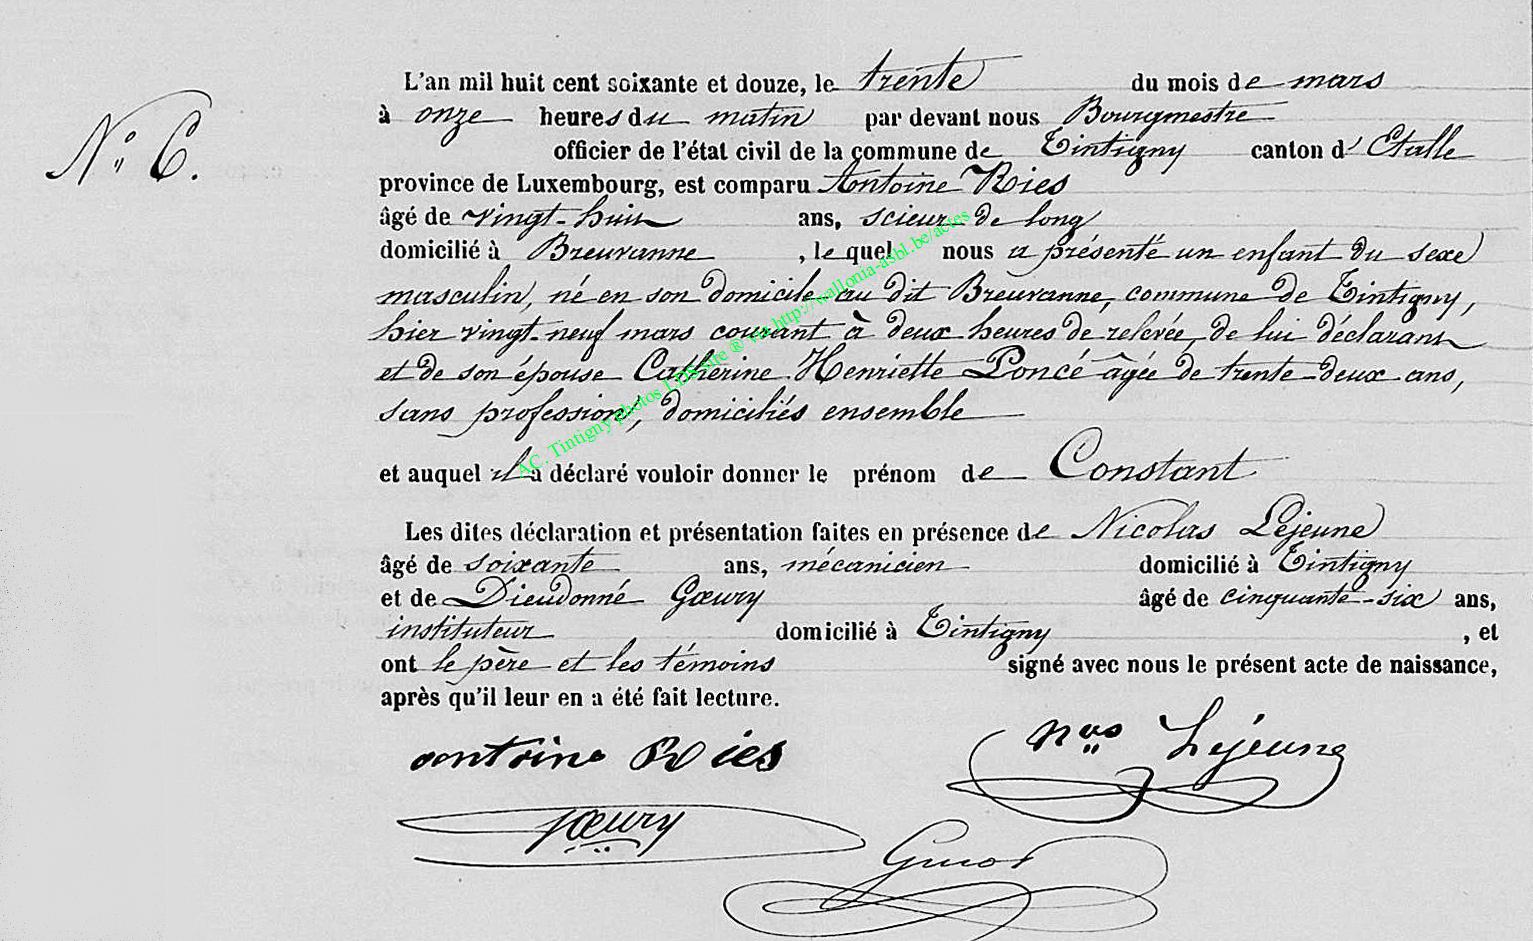 L'an mil huit cent soixante et douze, le trente du mois de mars
à onze heures du matin par devant nous Bourgmestre
officier de l'état civil de la commune de Tintigny canton d'Etalle
N° 6.
province de Luxembourg, est comparu Antoine Ries
âgé de vingt-huit ans, scieur de long
domicilié à Breuvanne, lequel nous a présenté un enfant du sexe
masculin, né en son domicile au dit Breuvanne, commune de Tintigny,
hier vingt-neuf mars courant à deux heures de relevée, de lui déclarant
et de son épouse Catherine Henriette Poncé âgée de trente-deux ans,
sans profession, domiciliés ensemble
et auquel il a déclaré vouloir donner le prénom de Constant
Les dites déclaration et présentation faites en présence de Nicolas Lejeune
âgé de soixante ans, mécanicien domicilié à Tintigny
et de Dieudonné Gœury âgé de cinquante-six ans,
instituteur domicilié à Tintigny, et
ont le père et les témoins signé avec nous le présent acte de naissance,
après qu'il leur en a été fait lecture.
antoine Ries
Nas Lejeune
Gœury
AC. Tintigny photos LDS site ® via http://wallonia-asbl.be/actes